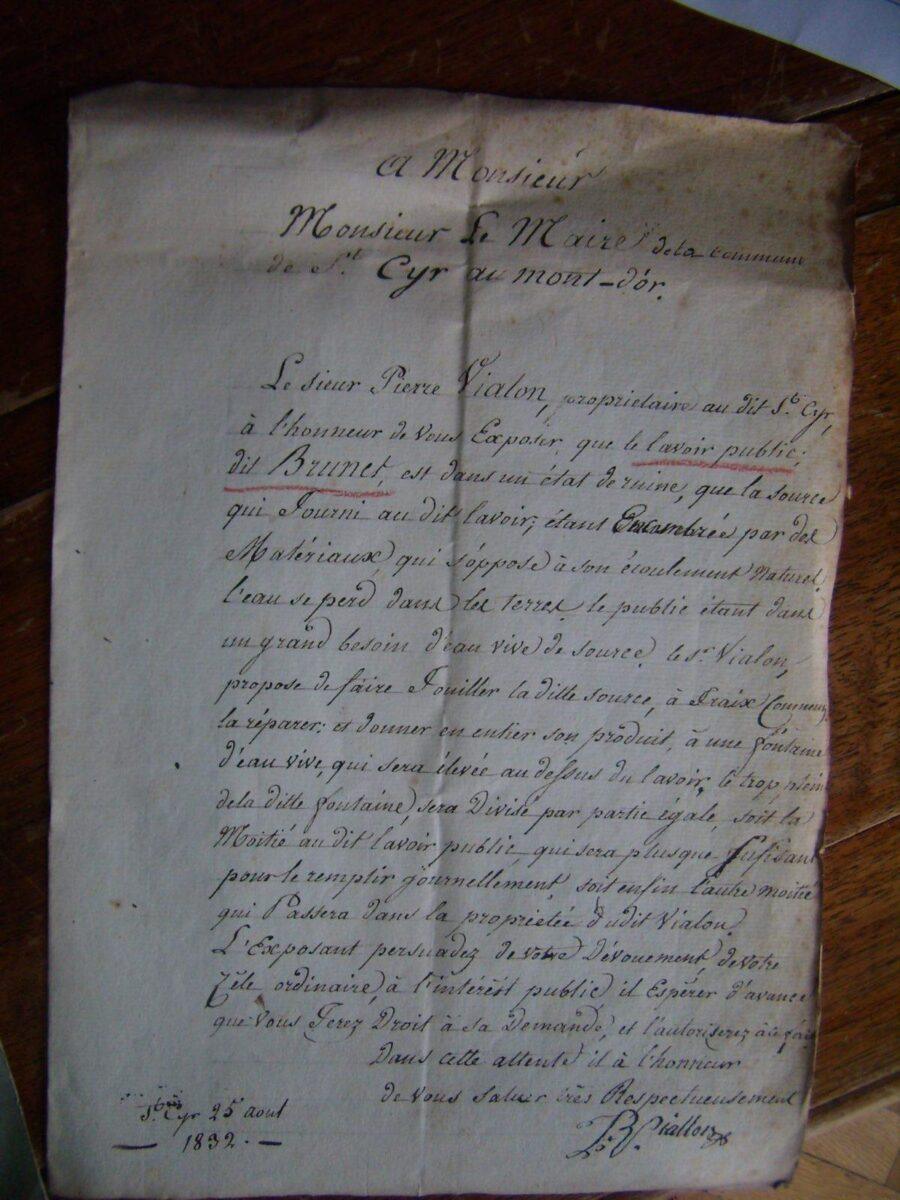 A Monsieur
Monsieur Le Maire de la commune
de St. Cyr au mont-d'or.
Le sieur Pierre Vialon, propriétaire au dit St. Cyr,
à l'honneur de vous Exposer, que le lavoir public,
dit Brunet, est dans un état de ruine, que la source
qui Fourni au dit lavoir, étant Encombrée par des
Matériaux qui s'oppose à son écoulement Naturel,
l'eau se perd dans les terres, le public étant dans
un grand besoin d'eau vive de source. le sr. Vialon,
propose de faire Fouiller la ditte source, à Fraix Commun,
la réparer; et donner en entier son produit, à une fontaine
d'eau vive, qui sera élevée au dessus du lavoir, le trop plein
de la ditte fontaine, sera Divisé par partie égale, soit la
Moitié au dit lavoir public, qui sera plusque sufisant
pour le remplir journellement, soit enfin l'autre moitié
qui Passera dans la propriétée dudit Vialon.
L'Exposant persuadez de votre Dévouement, de votre
Zèle ordinaire, à l'intérêt public, il Espérer d'avance
que vous Ferez Droit à sa Demande, et l'autoriserez à le faire
Dans cette attente il à l'honneur
de vous saluer très Respectueusement
St. Cyr 25 aout
1832.
Vialon